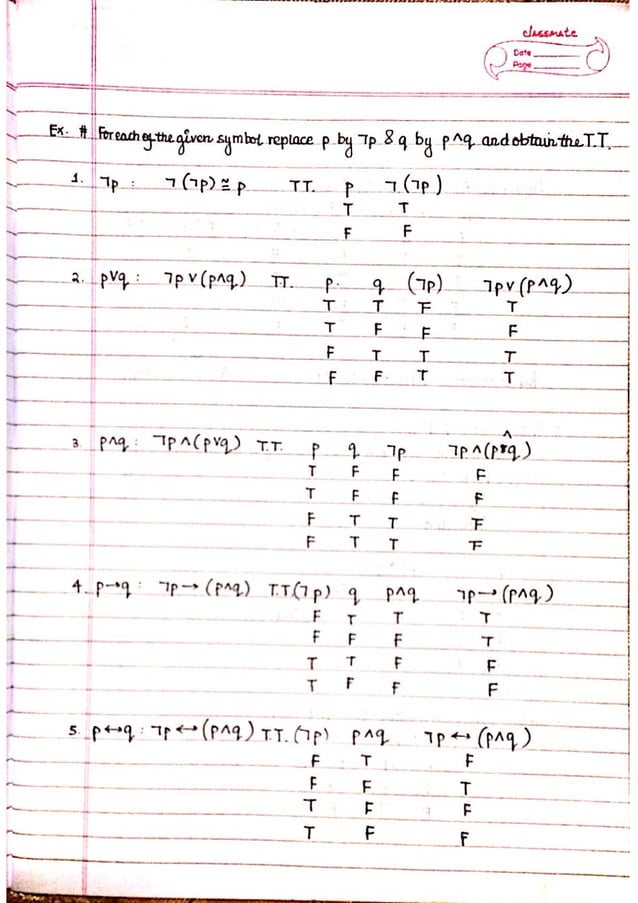 classmate
Date
Page
Ex. # For each of the given symbol replace p by ¬p & q by p^q and obtain the T.T.
1. ¬p : ¬(¬p) ≅ p TT. p ¬(¬p)
T T
F F
2. p∨q : ¬p ∨ (p^q) T.T. p. q (¬p) ¬p∨(p^q)
T T F T
T F F F
F T T T
F F T T
3. p^q : ¬p ^ (p∨q) T.T. p q ¬p ¬p ^ (p^q)
T F F F
T F F F
F T T F
F T T F
4. p→q : ¬p → (p^q) T.T. (¬p) q p^q ¬p → (p^q)
F T T T
F F F T
T T F F
T F F F
5. p↔q : ¬p ↔ (p^q) T.T. (¬p) p^q ¬p ↔ (p^q)
F T F
F F T
T F F
T F F